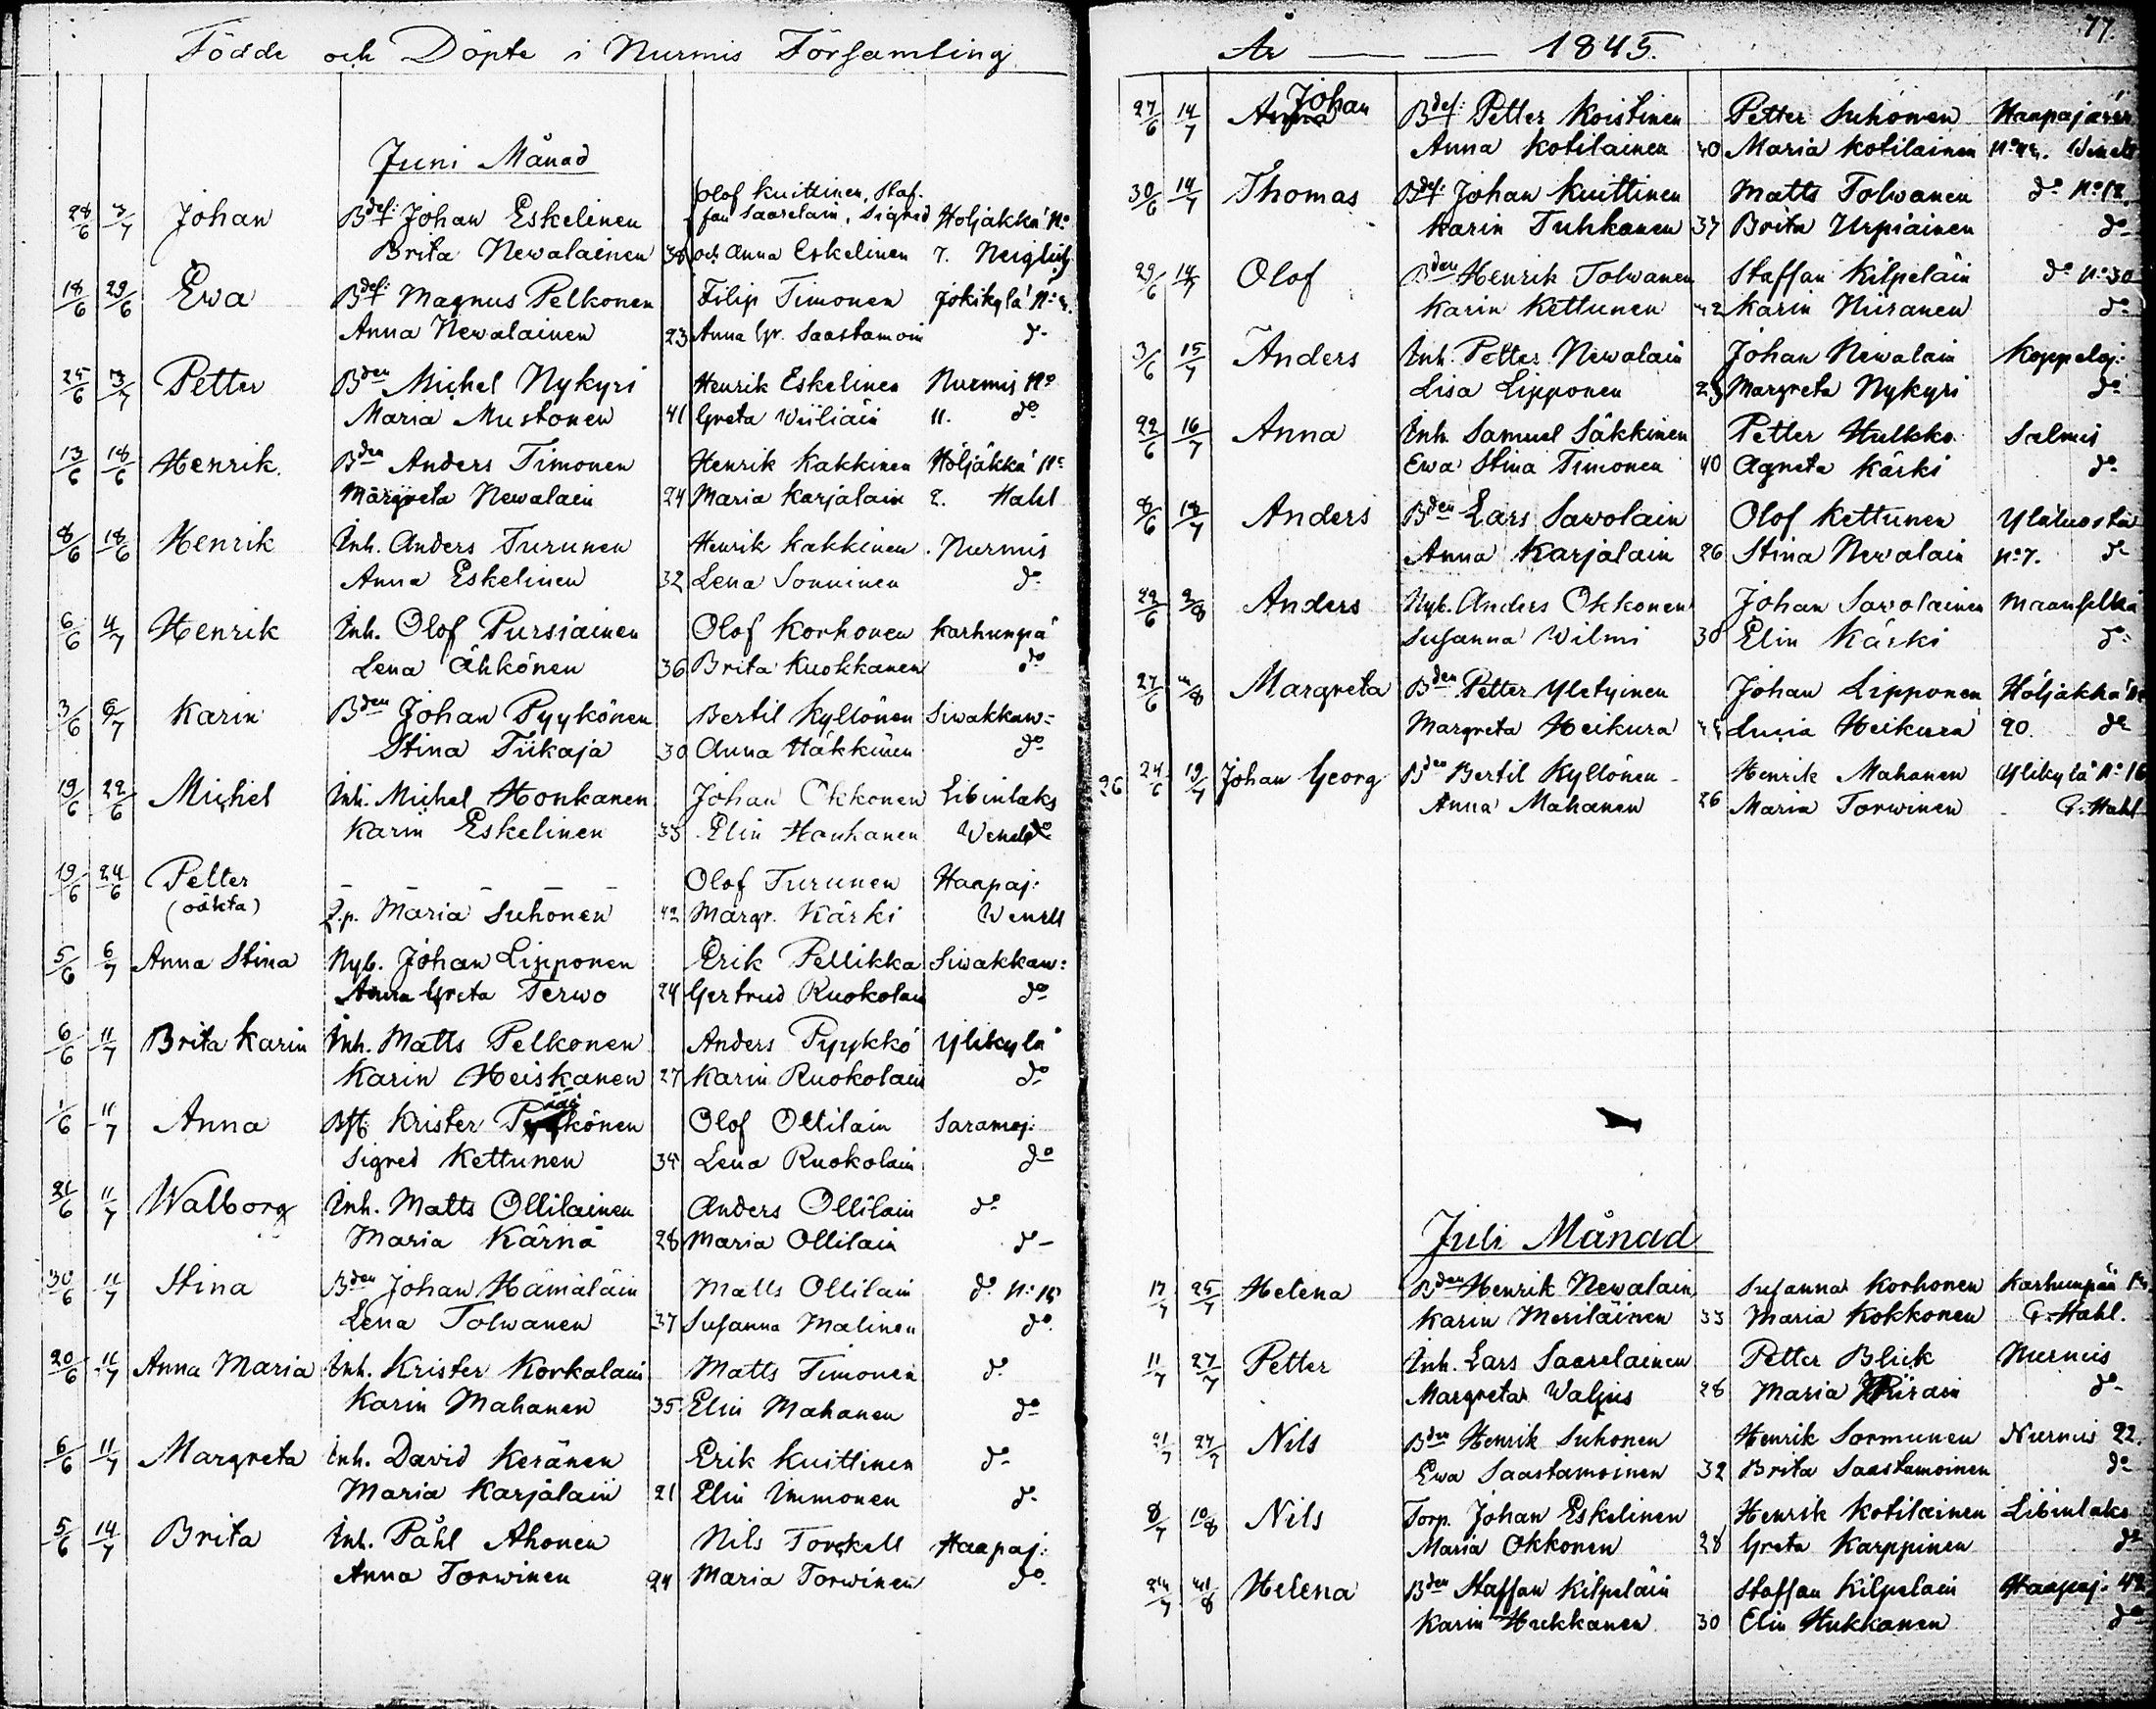 Födde och Döpte i Nurmis Församling
Juni Månad
28/6 3/7 Johan Bdef: Johan Eskelinen Olof Kuittinen, Staf-
fan Saarelain, Sigred Höljäkkä No
Brita Newalainen 38 och Anna Eskelinen 7.
18/6 29/6 Ewa Bdef: Magnus Pelkonen Filip Timonen Jokikylä No
Anna Newalainen 23 Anna Gr. Saastamoin do
25/6 13/7 Petter Bden Michel Nykyri Henrik Eskelinen Nurmis No
Maria Mustonen 41 Greta Wiiliäin 11. do
13/6 18/6 Henrik Bden Anders Timonen Henrik Kakkinen Höljäkkä No
Margreta Newalain 24 Maria Karjalain 2. Hahl
8/6 18/6 Henrik Inh. Anders Turunen Henrik Kakkinen Nurmis
Anna Eskelinen 32 Lena Sonninen do
6/6 4/7 Henrik Inh. Olof Pursiainen Olof Korhonen Karhunpä
Lena Ähkönen 36 Brita Kuokkanen do
3/6 6/7 Karin Bden Johan Pyykönen Bertil Kyllönen Siwakkaw=
Stina Tiikaja 30 Anna Häkkinen do
19/6 22/6 Michel Inh. Michel Honkanen Johan Okkonen Libinlaks
Karin Eskelinen 33 Elin Hauhanen Wenell
19/6 24/6 Petter — — — — — Olof Turunen Haapaj:
(oäkta) Q.p. Maria Suhonen 42 Margr. Kärki Wenell
5/6 6/7 Anna Stina Nyb. Johan Lipponen Erik Pellikka Siwakkaw:
Anna Greta Terwo 24 Gertrud Ruokolain do
6/6 11/7 Brita Karin Inh. Matts Pelkonen Anders Pyykkö Ylikylä
Karin Heiskanen 27 Karin Ruokolain do
1/6 11/7 Anna Krister Pääkönen Olof Ollilain Saramoj:
Sigred Kettunen 34 Lena Ruokolain do
21/6 11/7 Walborg Inh. Matts Ollilainen Anders Ollilain do
Maria Kärnä 28 Maria Ollilain do
30/6 11/7 Stina Bden Johan Hämäläin Matts Ollilain do No 15
Lena Tolwanen 37 Susanna Malinen do
20/6 11/7 Anna Maria Inh. Krister Korkalain Matts Timonen do
Karin Mahanen 35 Elin Mahanen do
6/6 11/7 Margreta Inh. David Keränen Erik Kuittinen do
Maria Karjalain 21 Elin Immonen do
5/6 14/7 Brita Inh. Påhl Ahonen Nils Torckell Haapaj:
Anna Torwinen 24 Maria Torwinen do
År — — 1845. 77.
27/6 14/7 Johan Bdef: Petter Koistinen Petter Suhonen Haapajärvi
Anna Kotilainen 40 Maria Kotilainen Wenell
30/6 14/7 Thomas Bdef: Johan Kuittinen Matts Tolwanen do No 12
Karin Tuhkanen 37 Brita Urpiainen do
29/6 14/7 Olof Bden Henrik Tolwanen Staffan Kilpeläin do No 30
Karin Kettunen 42 Karin Niiranen do
3/6 15/7 Anders Inh. Petter Newalain Johan Newalain Koppeloj:
Lisa Lipponen 23 Margreta Nykyri do
22/6 16/7 Anna Inh. Samuel Säkkinen Petter Hulkko Salmis
Ewa Stina Timonen 40 Agneta Kärki do
8/6 18/7 Anders Bden Lars Sawolain Olof Kettunen Yläluosta
Anna Karjalain 26 Stina Newalain No 7. do
22/6 2/8 Anders Nyb. Anders Okkonen Johan Savolainen Maanselkä
Susanna Wilmi 38 Elin Kärki do
27/6 Margreta Bden Petter Yletyinen Johan Lipponen Höljäkkä No
Margreta Heikura Lucia Heikura 20. do
26 24/6 19/7 Johan Georg Bden Bertil Kyllönen Henrik Mahanen Ylikylä No 16
Anna Mahanen 26 Maria Torwinen G. Hahl
Juli Månad
17/7 25/7 Helena Bden Henrik Newalain Susanna Korhonen Karhunpää
Karin Meriläinen 33 Maria Kokkonen G. Hahl.
11/7 27/7 Petter Inh. Lars Saarelainen Petter Blick Nurmis
Margreta Waljus 28 Maria do
21/7 27/7 Nils Bden Henrik Suhonen Henrik Sormunen Nurmis 22.
Ewa Saastamoinen 32 Brita Saastamoinen do
8/7 10/8 Nils Torp. Johan Eskelinen Henrik Kotilainen Libinlaks
Maria Okkonen 28 Greta Karppinen do
24/7 Helena Bden Staffan Kilpeläin Staffan Kilpelain Haapaj. 42
Karin Hukkanen 30 Elin Hukkanen do